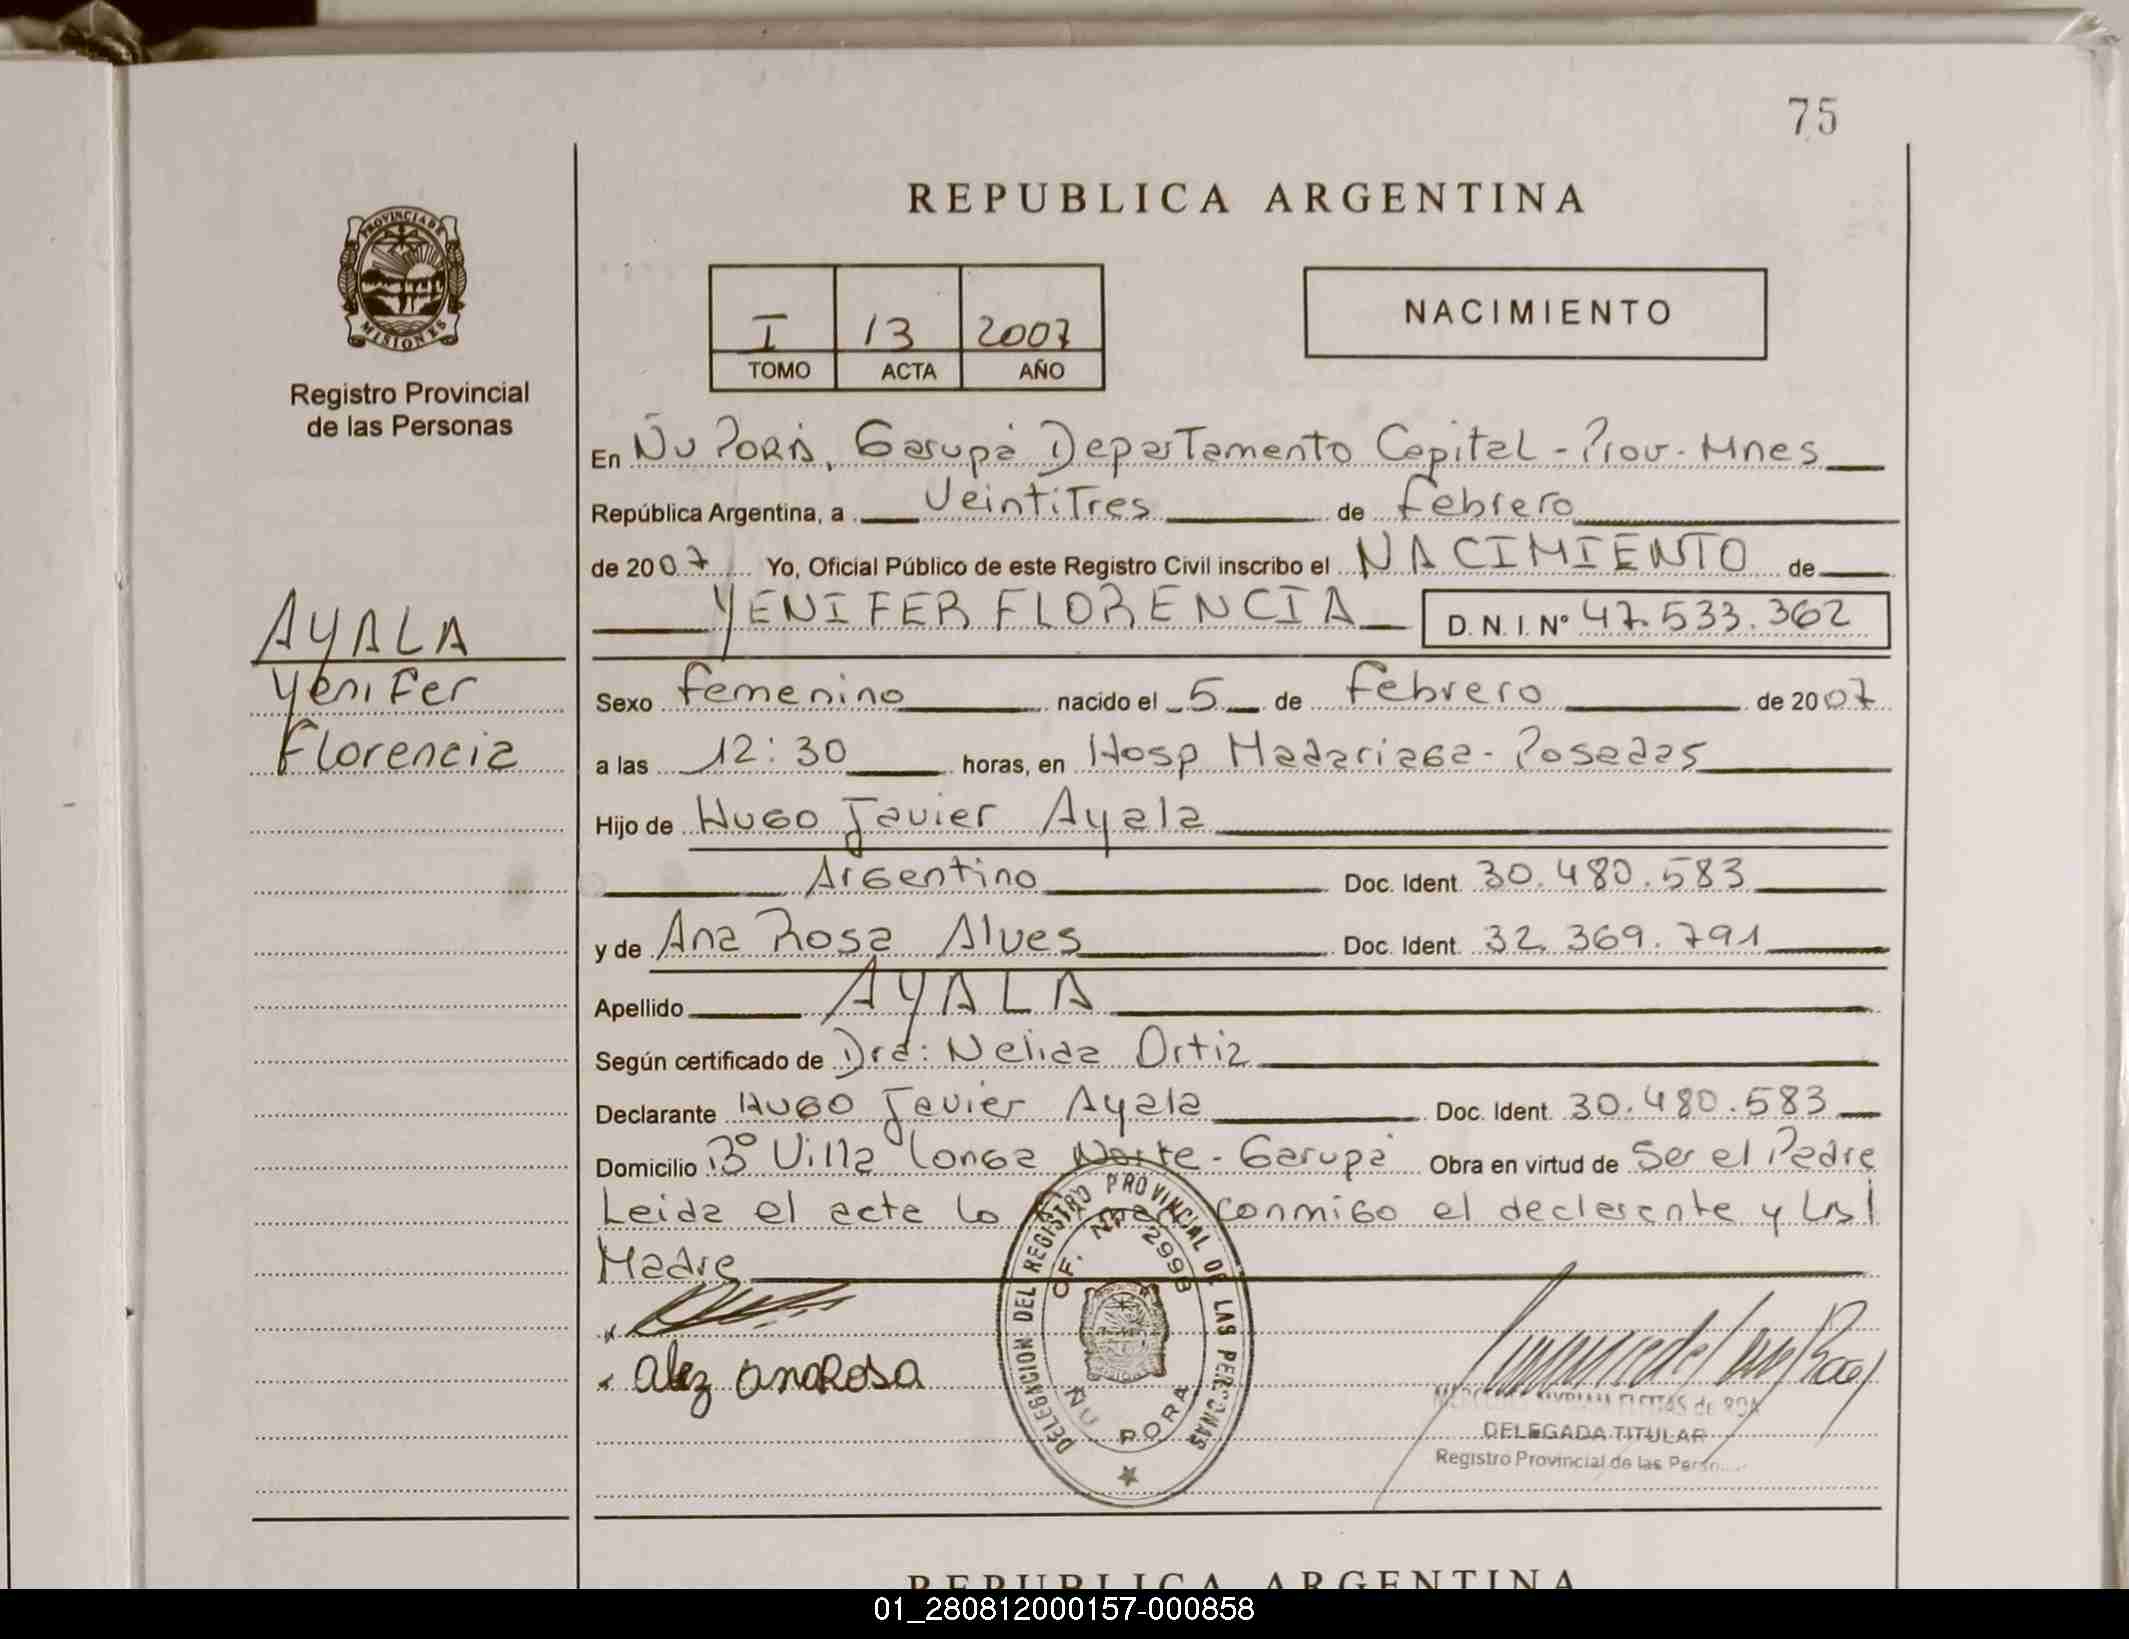 75
REPUBLICA ARGENTINA
PROVINCIA DE MISIONES
Registro Provincial
de las Personas
I 13 2007
TOMO ACTA AÑO
NACIMIENTO
En Ñu Porá, Garupá Departamento Capital - Prov. Mnes
República Argentina, a Veintitres de Febrero
de 2007 Yo, Oficial Público de este Registro Civil inscribo el NACIMIENTO de
YENIFER FLORENCIA D. N. I. Nº 47.533.362
AYALA
Yenifer
Florencia
Sexo Femenino nacido el 5 de Febrero de 2007
a las 12:30 horas, en Hosp Madariaga - Posadas
Hijo de Hugo Javier Ayala
Argentino Doc. Ident. 30.480.583
y de Ana Rosa Alves Doc. Ident. 32.369.791
Apellido AYALA
Según certificado de Dra: Nelida Ortiz
Declarante Hugo Javier Ayala Doc. Ident. 30.480.583
Domicilio Bº Villa Longa Norte - Garupá Obra en virtud de Ser el Padre
Leida el acta lo conmigo el declarante y la
Madre
DELEGACION DEL REGISTRO PROVINCIAL DE LAS PERSONAS
OF. Nº 2998
ÑU PORA
alez anaRosa
FLEITAS de ROA
DELEGADA TITULAR
Registro Provincial de las
REPUBLICA ARGENTINA
01_280812000157-000858